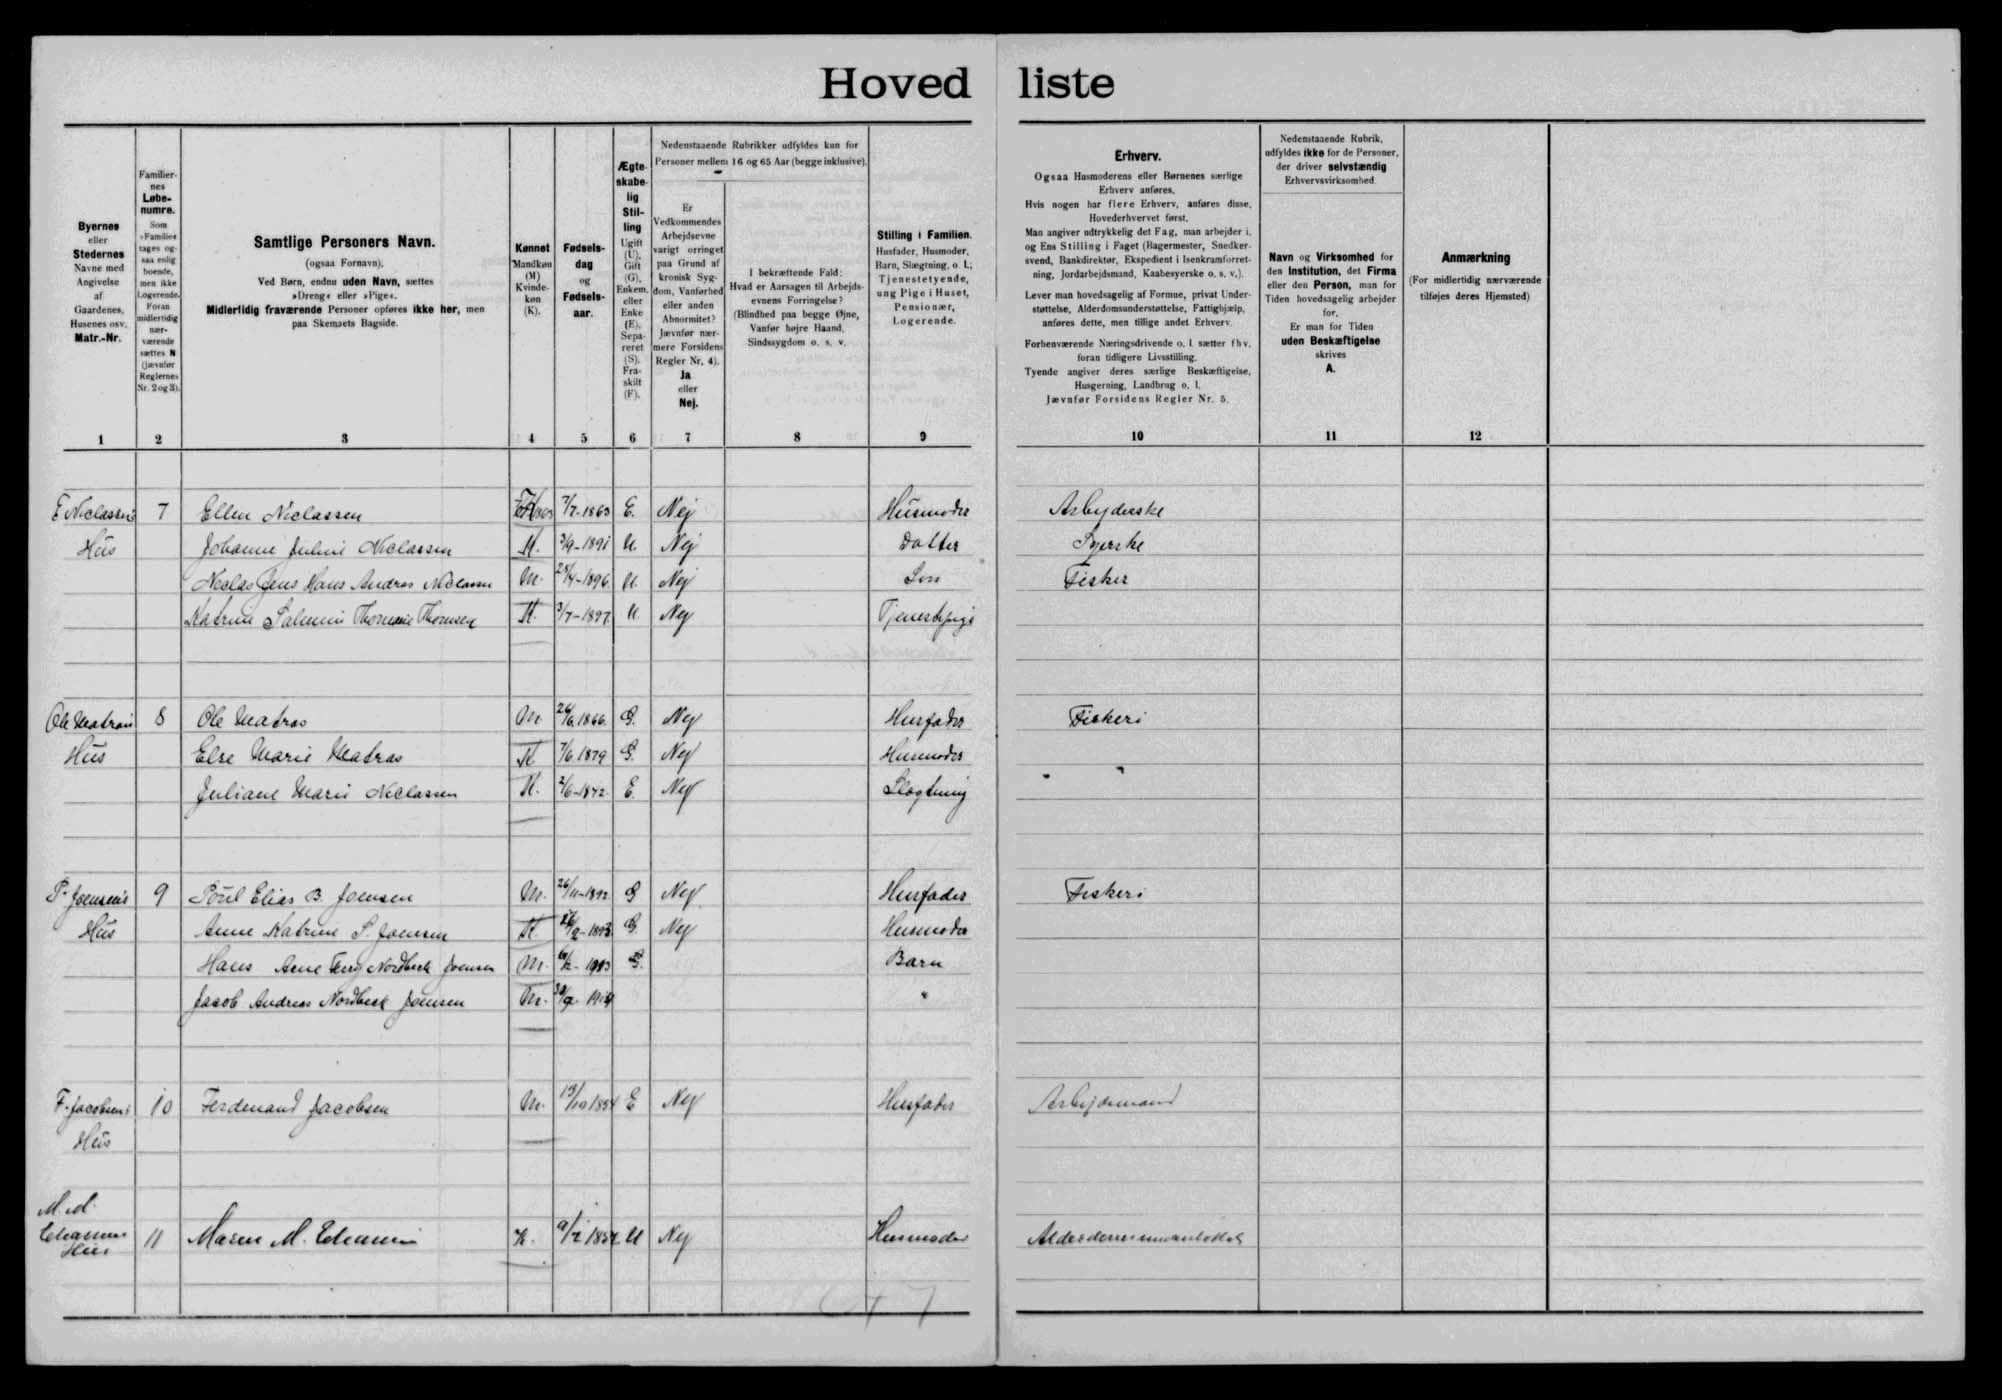 Hovedliste
Byernes
eller
Stedernes
Navne med
Angivelse
af
Gaardenes,
Husenes osv.
Matr.-Nr.
Familier-
nes
Løbe-
numre.
Som
»Familie«
tages og-
saa enlig
boende,
men ikke
Logerende.
Foran
midlertidig
nær-
værende
sættes N
(jævnfør
Reglernes
Nr. 2 og 3).
Samtlige Personers Navn.
(ogsaa Fornavn).
Ved Børn, endnu uden Navn, sættes
»Dreng« eller »Pige«.
Midlertidig fraværende Personer opføres ikke her, men
paa Skemaets Bagside.
Kønnet
Mandkøn
(M)
Kvinde-
køn
(K).
Fødsels-
dag
og
Fødsels-
aar.
Ægte-
skabe-
lig
Stil-
ling
Ugift
(U),
Gift
(G),
Enkem.
eller
Enke
(E),
Sepa-
reret
(S).
Fra-
skilt
(F).
Nedenstaaende Rubrikker udfyldes kun for
Personer mellem 16 og 65 Aar (begge inklusive).
Er
Vedkommendes
Arbejdsevne
varigt forringet
paa Grund af
kronisk Syg-
dom, Vanførhed
eller anden
Abnormitet?
Jævnfør nær-
mere Forsidens
Regler Nr. 4).
Ja
eller
Nej.
I bekræftende Fald:
Hvad er Aarsagen til Arbejds-
evnens Forringelse?
(Blindhed paa begge Øjne,
Vanfør højre Haand,
Sindssygdom o. s. v.
Stilling i Familien.
Husfader, Husmoder,
Barn, Slægtning, o. l.;
Tjenestetyende,
ung Pige i Huset,
Pensionær,
Logerende.
Erhverv.
Ogsaa Husmoderens eller Børnenes særlige
Erhverv anføres.
Hvis nogen har flere Erhverv, anføres disse,
Hovederhvervet først.
Man angiver udtrykkelig det Fag, man arbejder i,
og Ens Stilling i Faget (Bagermester, Snedker-
svend, Bankdirektør, Ekspedient i Isenkramforret-
ning, Jordarbejdsmand, Kaabesyerske o. s. v.).
Lever man hovedsagelig af Formue, privat Under-
støttelse, Alderdomsunderstøttelse, Fattighjælp,
anføres dette, men tillige andet Erhverv.
Forhenværende Næringsdrivende o. l. sætter fhv.
foran tidligere Livsstilling.
Tyende angiver deres særlige Beskæftigelse,
Husgerning, Landbrug o. l.
Jævnfør Forsidens Regler Nr. 5.
Nedenstaaende Rubrik,
udfyldes ikke for de Personer,
der driver selvstændig
Erhvervsvirksomhed.
Navn og Virksomhed for
den Institution, det Firma
eller den Person, man for
Tiden hovedsagelig arbejder
for.
Er man for Tiden
uden Beskæftigelse
skrives
A.
Anmærkning
(For midlertidig nærværende
tilføjes deres Hjemsted)
1 2 3 4 5 6 7 8 9 10 11 12
E Niclasens 7 Ellen Niclassen 7/7-1863 E. Nej Husmoder Arbejderske
Hus Johanne Juline Niclassen K. 3/9-1891 U. Nej Datter Syerske
Niclas Jens Hans Andras Niclassen M. 25/4-1896 U. Nej Søn Fisker
Katrine Salemine Thomsen K. 3/7-1897 U. Nej
Ole Matras's 8 Ole Matras M. 26/6 1866. G. Nej Husfader Fiskeri
Hus Else Marie Matras K 7/6 1879 G. Nej Husmoder
Juliane Marie Niclassen K. 2/6-1842. E. Nej Slægtning
P. Joensen's 9 Poul Elias B. Joensen M. 26/11-1892 G Nej Husfader Fiskeri
Hus Anne Katrine S. Joensen K. G. Nej Husmoder
Hans Arne Nordbeck Joensen M. G. Barn
Jacob Andreas Nordbeck Joensen M. "
F. Jacobsens 10 Ferdenand Jacobsen M. 19/10 1854 E Nej Husfader Arbejdsmand
Hus
M. M.
Hus 11 Maren M. K. U Nej Husmoder